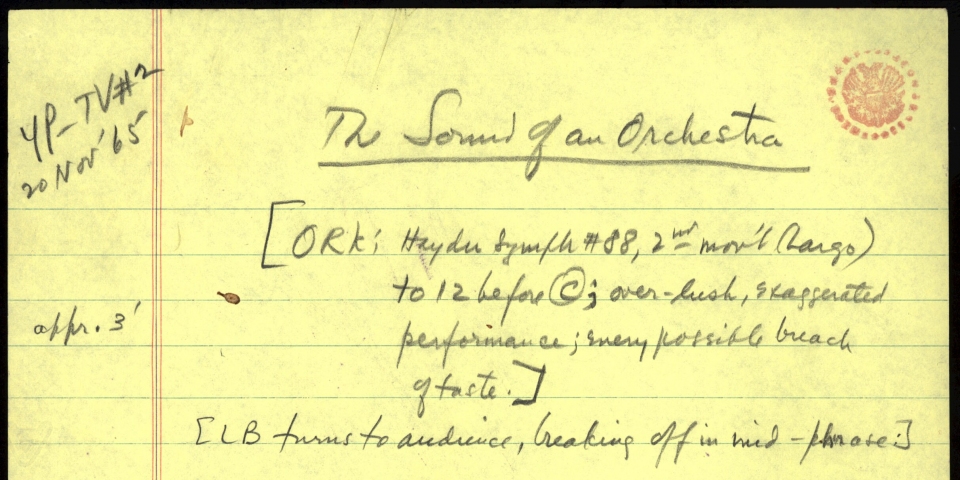 YP-TV#2
20 Nov '65
The Sound of an Orchestra
[ORK: Haydn Symph #88, 2nd mov't (Largo)
to 12 before Ⓒ; over-lush, exaggerated
appr. 3'
performance; every possible breach
of taste.]
[LB turns to audience, breaking off in mid-phrase:]